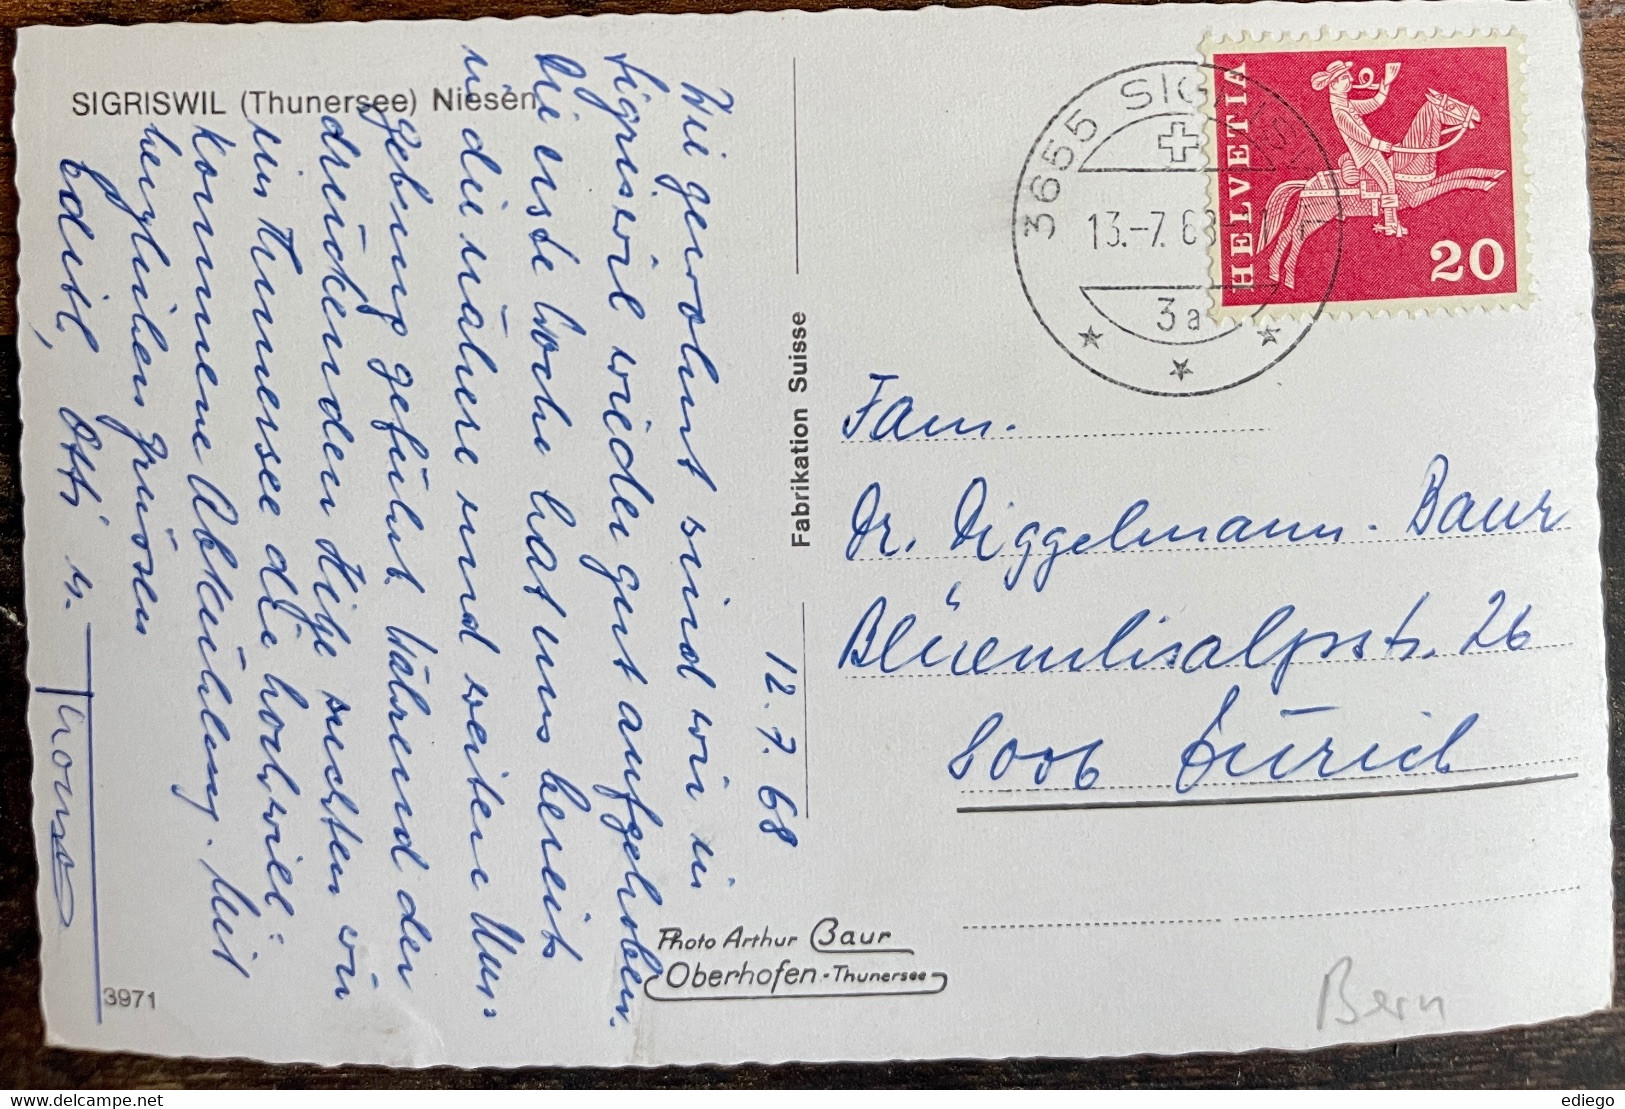 SIGRISWIL (Thunersee) Niesen
12. 7. 68
Wie gewohnt sind wir in
Sigriswil wieder gut aufgehoben.
Die erste Woche hat uns bereits
in die nähere und weitere Um=
gebung geführt. Während der
drückenden Hitze suchten wir
im Thunersee die hochwill=
kommene Abkühlung. Mit
herzlichen Grüssen
Edith, Otti u.
Thomas
3971
Fabrikation Suisse
Photo Arthur Baur
Oberhofen - Thunersee
3655 SIGRISWIL
13.-7. 68
3a
HELVETIA
20
Fam.
Dr. Diggelmann - Baur
Blüemlisalpstr. 26
8006 Zürich
Bern
ediego